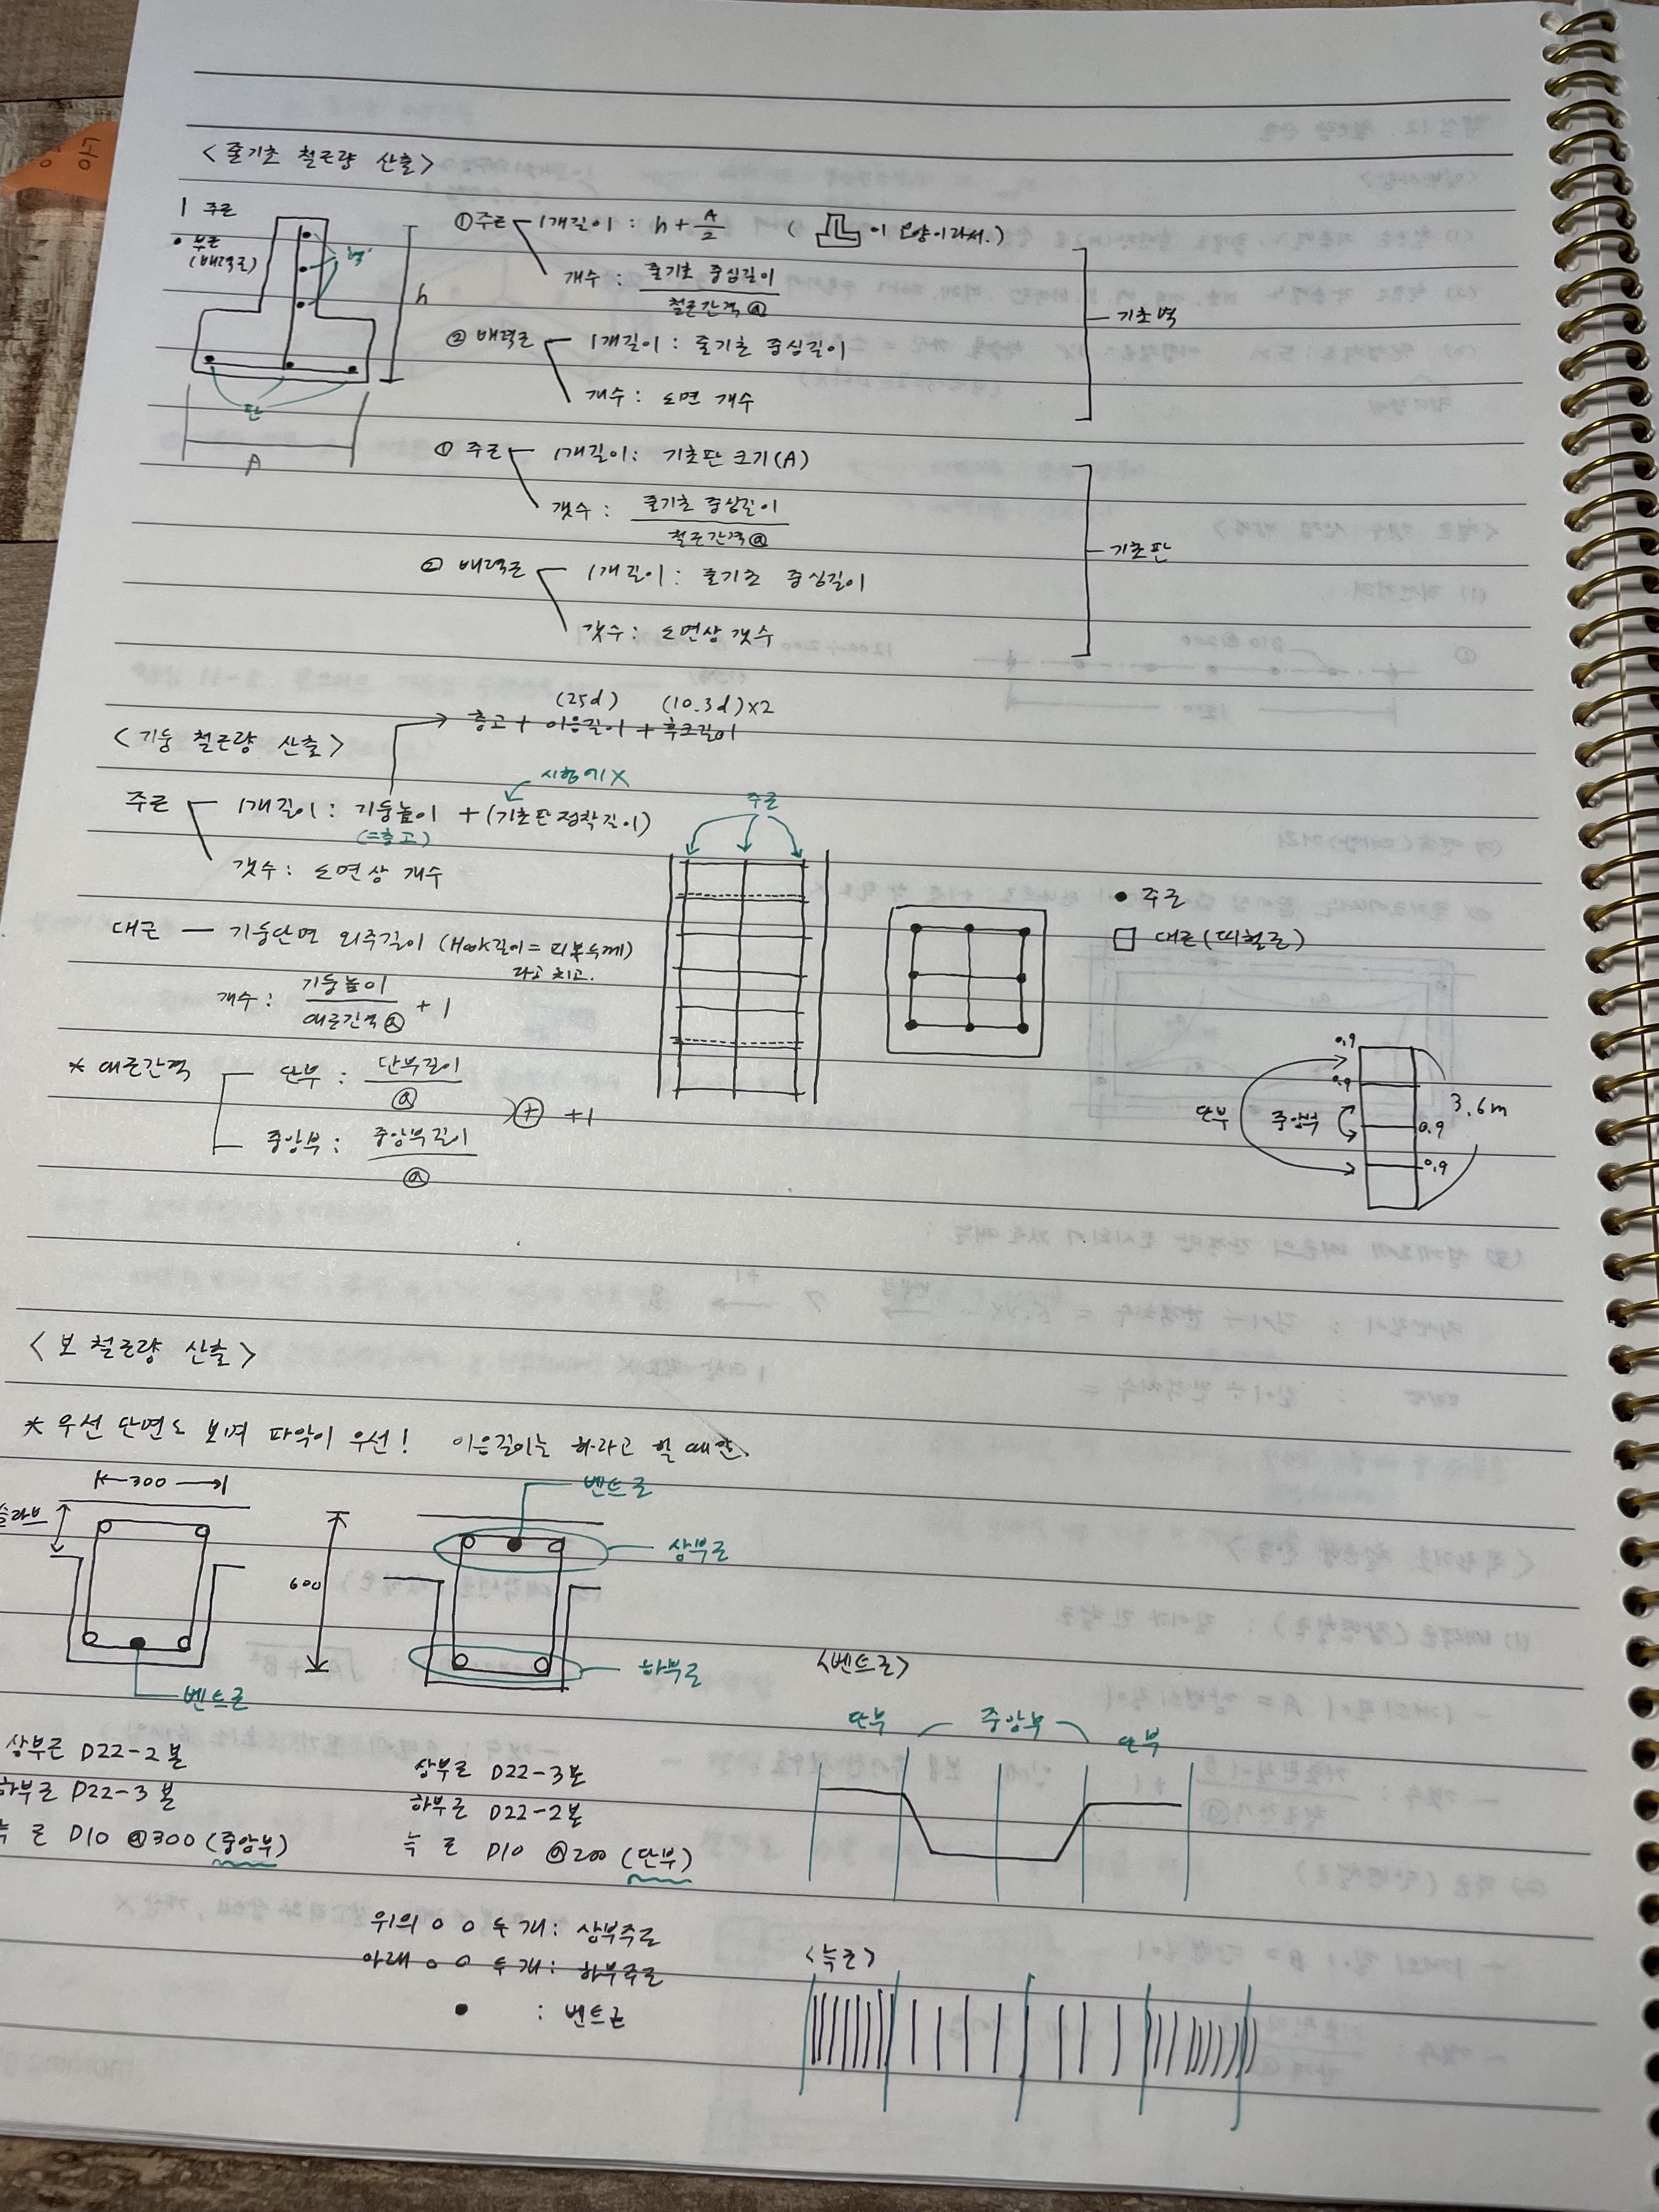 <줄기초 철근량 산출>
| 주근
• 부근
(배력근)
벽
h
판
A
① 주근 1개길이 : h + A/2 ( 이 모양이라서.)
개수 : 줄기초 중심길이 / 철근간격@
② 배력근 1개길이 : 줄기초 중심길이
개수 : 도면 개수
기초벽
① 주근 1개길이 : 기초판 크기(A)
갯수 : 줄기초 중심길이 / 철근간격@
② 배력근 1개길이 : 줄기초 중심길이
갯수 : 도면상 갯수
기초판
(25d) (10.3d)×2
층고 + 이음길이 + 후크길이
<기둥 철근량 산출>
시험에X
주근 1개길이 : 기둥높이 + (기초판 정착길이)
(=층고)
갯수 : 도면상 개수
대근 — 기둥단면 외주길이 (Hook길이 = 피복두께)
라고 치고.
개수 : 기둥높이 / 대근간격@ + 1
* 대근간격 단부 : 단부길이 / @
중앙부 : 중앙부길이 / @
⊕ +1
주근
• 주근
□ 대근(띠철근)
0.9
0.9
0.9
0.9
3.6m
단부
중앙부
<보 철근량 산출>
* 우선 단면도 보며 파악이 우선! 이음길이는 하라고 할 때만.
300
슬라브
600
벤트근
벤트근
상부근
하부근
상부근 D22-2본
하부근 D22-3본
늑 근 D10 @300 (중앙부)
상부근 D22-3본
하부근 D22-2본
늑 근 D10 @200 (단부)
위의 o o 두 개 : 상부주근
아래 o o 두 개 : 하부주근
• : 벤트근
<벤트근>
단부 중앙부 단부
<늑근>